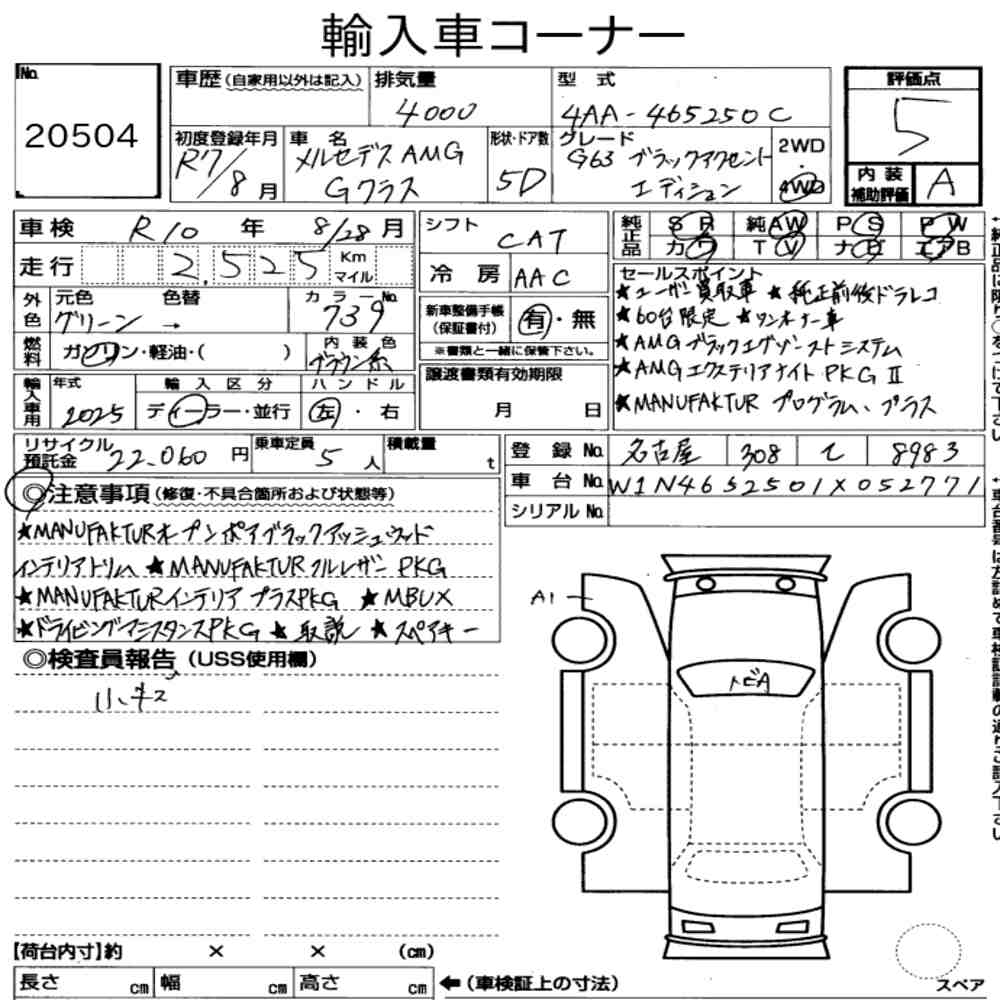 輸入車コーナー
No.
20504
車歴(自家用以外は記入)
排気量
4000
型式
4AA-465250C
評価点
5
初度登録年月
R7/8月
車名
メルセデスAMG
Gクラス
形状・ドア数
5D
グレード
G63 ブラックアクセント
エディション
2WD
・
4WD
内装
補助評価
A
車検 R10年 8/28月
走行 2,525 Km
マイル
シフト
CAT
冷房 AAC
純正品
SR 純AW PS PW
カワ TV ナビ エアB
外色
元色 色替 カラーNo.
グリーン → 739
燃料
ガソリン・軽油・( )
内装色
ブラウン系
新車整備手帳
(保証書付)
有・無
※書類と一緒に保管下さい。
セールスポイント
★ユーザー買取車 ★純正前後ドラレコ
★60台限定 ★ワンオーナー車
★AMGブラックエグゾーストシステム
★AMGエクステリアナイトPKGⅡ
★MANUFAKTUR プログラム、プラス
輸入車用
年式
2025
輸入区分
ディーラー・並行
ハンドル
左・右
譲渡書類有効期限
月 日
リサイクル
預託金
22.060円
乗車定員
5人
積載量
t
登録No. 名古屋 308 て 8983
車台No. W1N4652501X052771
シリアルNo.
◎注意事項(修復・不具合箇所および状態等)
★MANUFAKTURオープンポアブラックアッシュウッド
インテリアトリム ★MANUFAKTURフルレザーPKG
★MANUFAKTURインテリアプラスPKG ★MBUX
★ドライビングアシスタンスPKG ★取説 ★スペアキー
◎検査員報告(USS使用欄)
小キズ
A1
トビA
【荷台内寸】約 × × (cm)
長さ cm 幅 cm 高さ cm
←(車検証上の寸法)
スペア